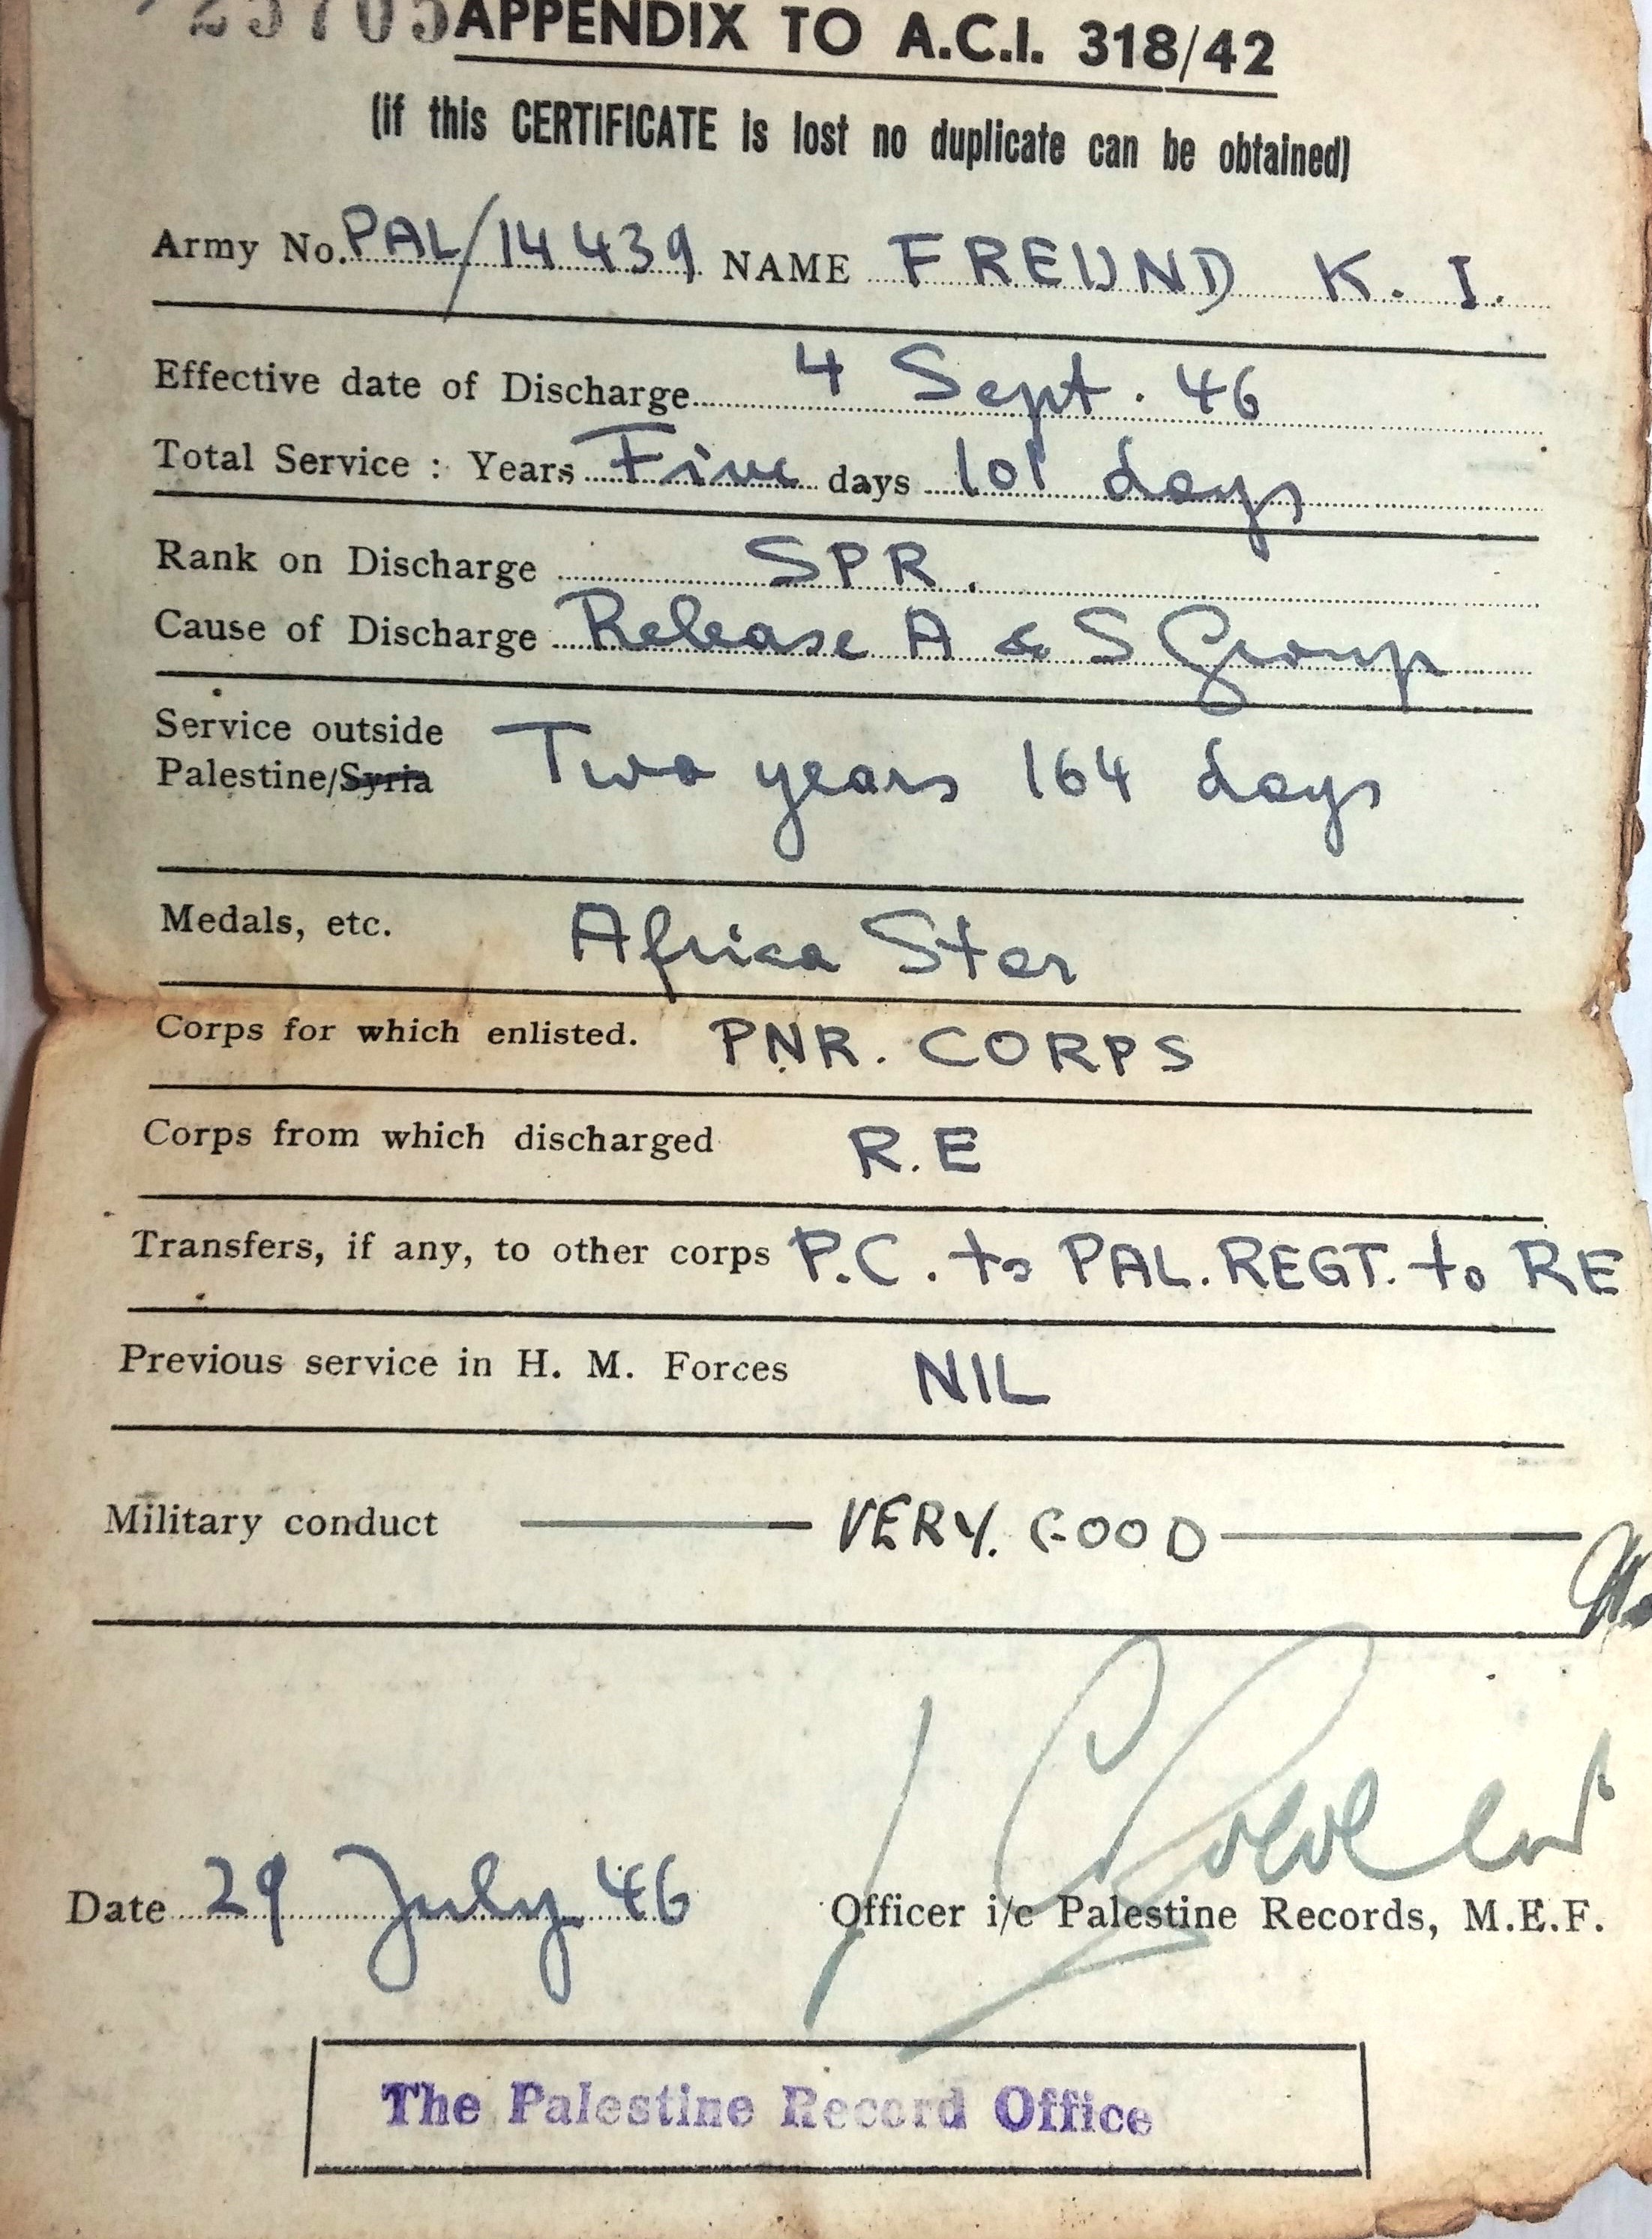 25705 APPENDIX TO A.C.I. 318/42
(if this CERTIFICATE is lost no duplicate can be obtained)
Army No. PAL/14439 NAME FREUND K. I.
Effective date of Discharge 4 Sept. 46
Total Service : Years Five days 101 days
Rank on Discharge SPR.
Cause of Discharge Release A & S Group
Service outside
Palestine/Syria Two years 164 days
Medals, etc. Africa Star
Corps for which enlisted. PNR. CORPS
Corps from which discharged R.E
Transfers, if any, to other corps P.C. to PAL. REGT. to RE
Previous service in H. M. Forces NIL
Military conduct VERY. GOOD
Date 29 July 46 Officer i/c Palestine Records, M.E.F.
The Palestine Record Office